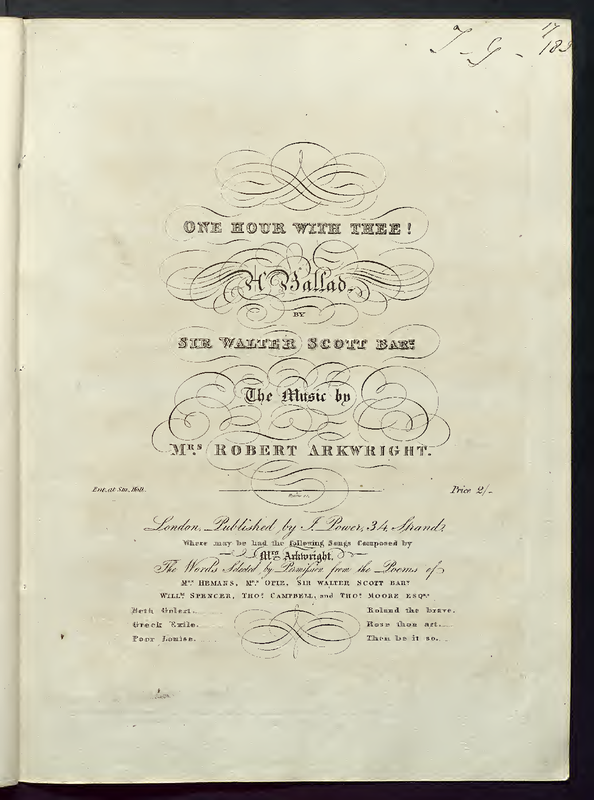 T - G - 17
ONE HOUR WITH THEE!
A Ballad,
BY
SIR WALTER SCOTT BART.
The Music by
MRS. ROBERT ARKWRIGHT.
Ent. at Sta. Hall.
Price 2/-
London, Published by J. Power, 34, Strand.
Where may be had the following Songs Composed by
Mrs. Arkwright.
The Words Selected by Permission from the Poems of
MRS. HEMANS, MRS. OPIE, SIR WALTER SCOTT BART.
WILLM. SPENCER, THOS. CAMPBELL, and THOS. MOORE ESQRS.
Beth Gelert.
Roland the brave.
Greek Exile.
Rose thou art
Poor Louise.
Then be it so.